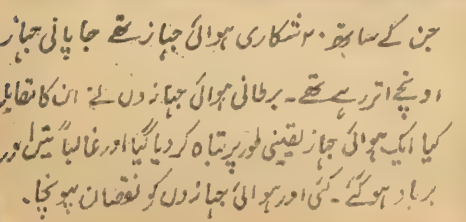 جن کے ساتھ ۲۰ شکاری ہوائی جہاز تھے جاپانی جہاز
اونچے اتر رہے تھے۔ برطانی ہوائی جہازوں نے ان کا مقابلہ
کیا ایک ہوائی جہاز یقینی طور پر تباہ کر دیا گیا اور غالباً تین اور
برباد ہو گئے۔ کئی اور ہوائی جہازوں کو نقصان پہونچا۔